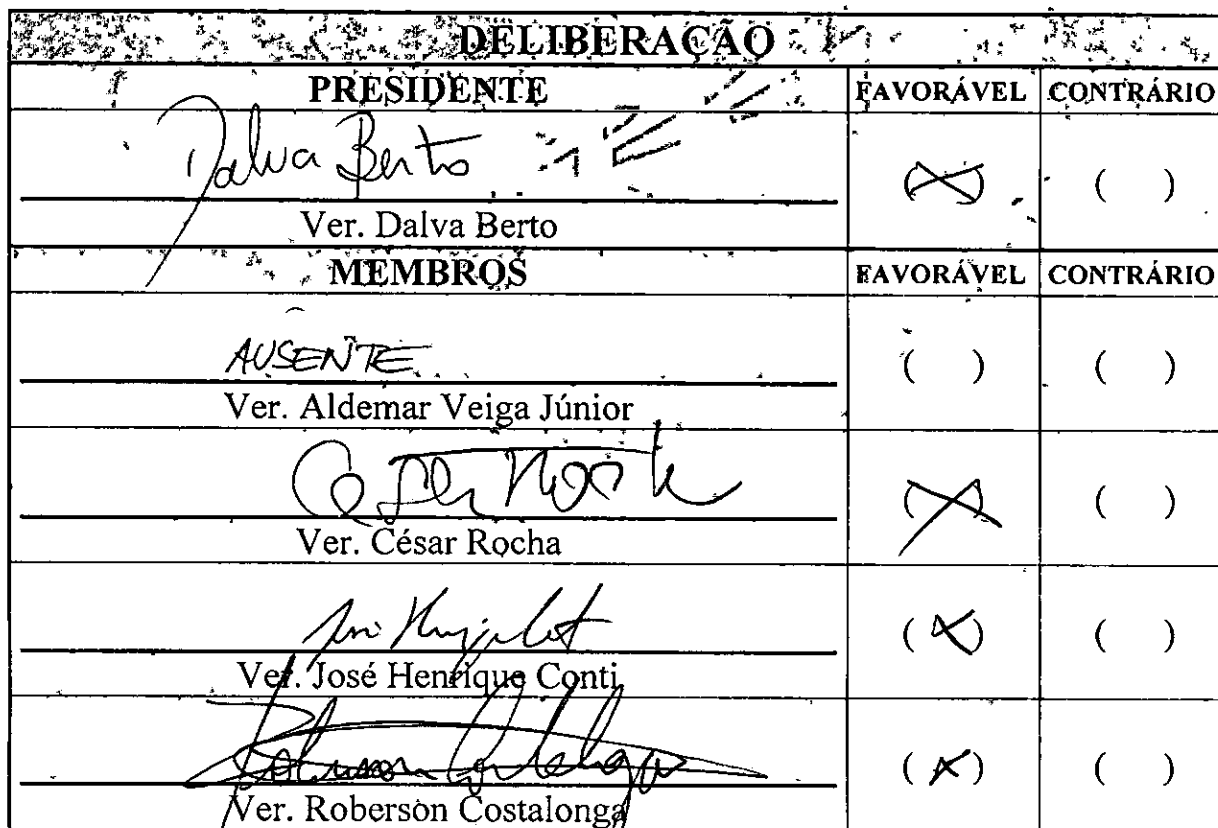 DELIBERAÇÃO
PRESIDENTE FAVORÁVEL CONTRÁRIO
Dalva Berto (X) ( )
Ver. Dalva Berto
MEMBROS FAVORÁVEL CONTRÁRIO
AUSENTE ( ) ( )
Ver. Aldemar Veiga Júnior
(X) ( )
Ver. César Rocha
(X) ( )
Ver. José Henrique Conti
(X) ( )
Ver. Roberson Costalonga